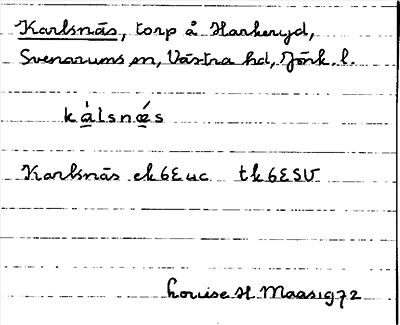 Karlsnäs, torp å Harkeryd,
Svenarums sn, Västra hd, Jönk. l.
kálsnǽs
Karlsnäs ek 6E uc tk 6E SV
Louise H Maas 1972